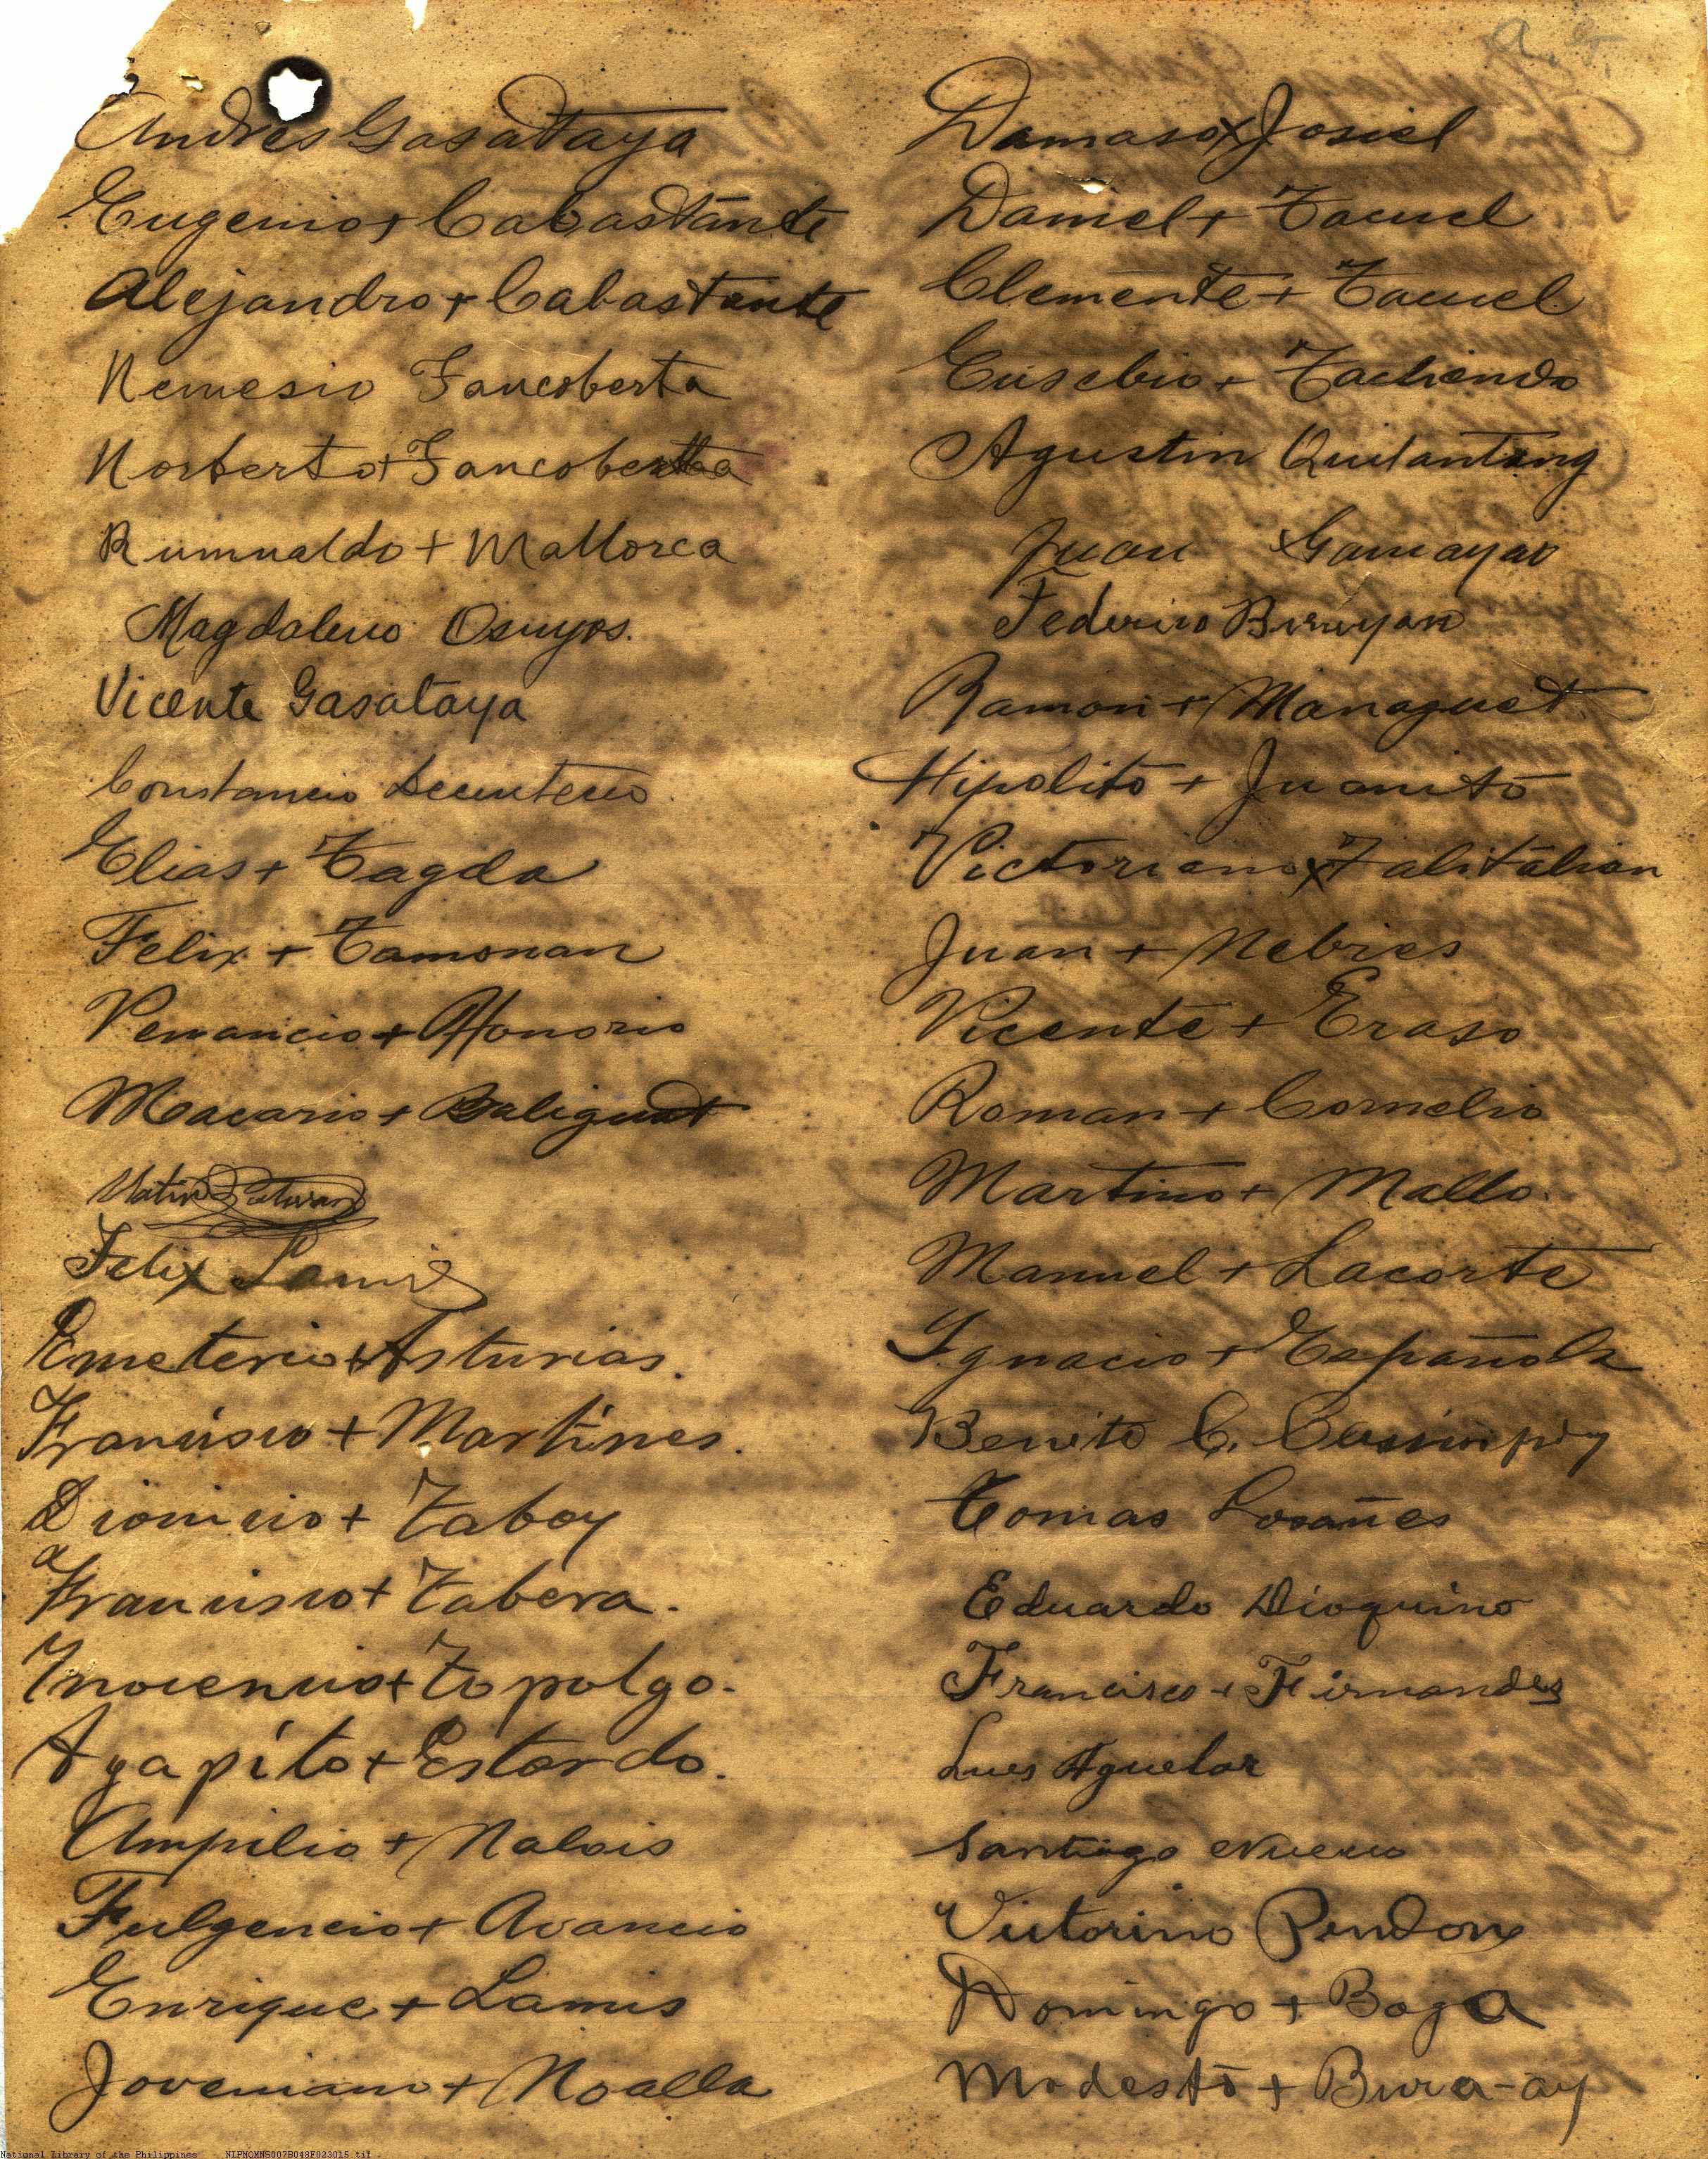 a. G.
Andres Gasattaya
Eugenio + Cabastante
Alejandro + Cabastante
Nemesio Fancoberta
Norberto + Fancobertta
Rumualdo + Mallorca
Magdaleno Osuyos.
Vicente Gasataya
Constancio
Elias + Tagda
Felix + Tamonan
Venancio + Honorio
Macario + Baliguat
Felix Lamis
Emeterio + Asturias.
Francisco + Martines.
Dionicio + Taboy
Francisco + Tabera.
Inocencio + Topolgo.
Agapito + Estordo.
Ampilio + Nalois
Fulgencio + Avancio
Enrique + Lamis
Joveniano + Noalla
Damaso x Josiel
Daniel + Tacuel
Clemente + Tacuel
Eusebio + Tacliendo
Agustin Quilantang
Juan Gamayao
Federico Biruyan
Ramon + Managuet
Hipolito + Juanito
Victoriano x Talitalian
Juan + Nebres
Vicente + Eraso
Roman + Cornelio
Martino + Mallo.
Manuel + Lacorte
Ignacio + Española
Benito C.
Tomas Losañes
Eduardo Dioquino
Francisco + Firnandes
Luis Aguelar
Santiago Nuevo
Victorino Pendon
Domingo + Boga
Modesto + Bura-ay
National Library of the Philippines NLPMQMNS007B048F023015.tif